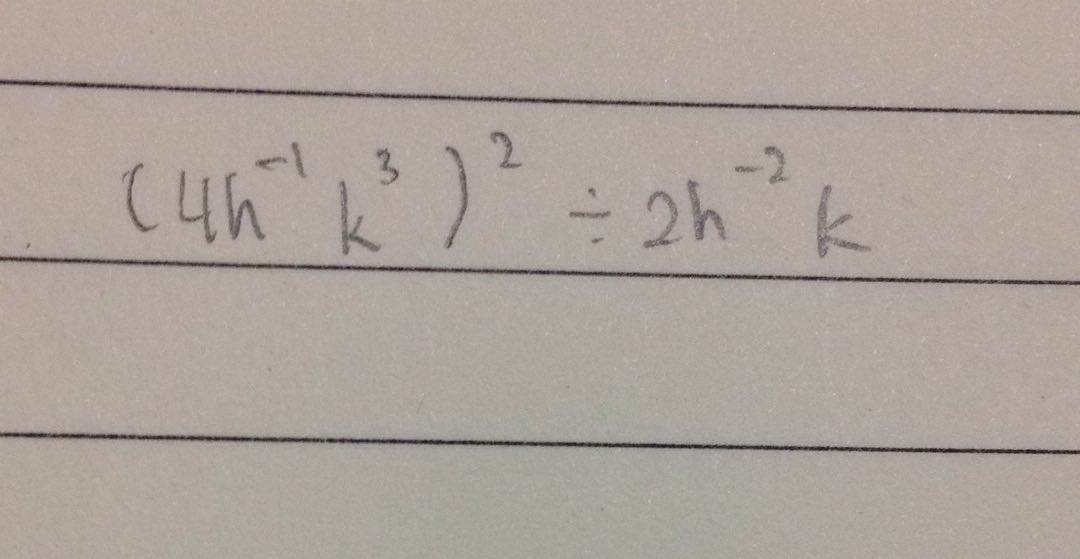 (4h⁻¹ k³)² ÷ 2h⁻² k